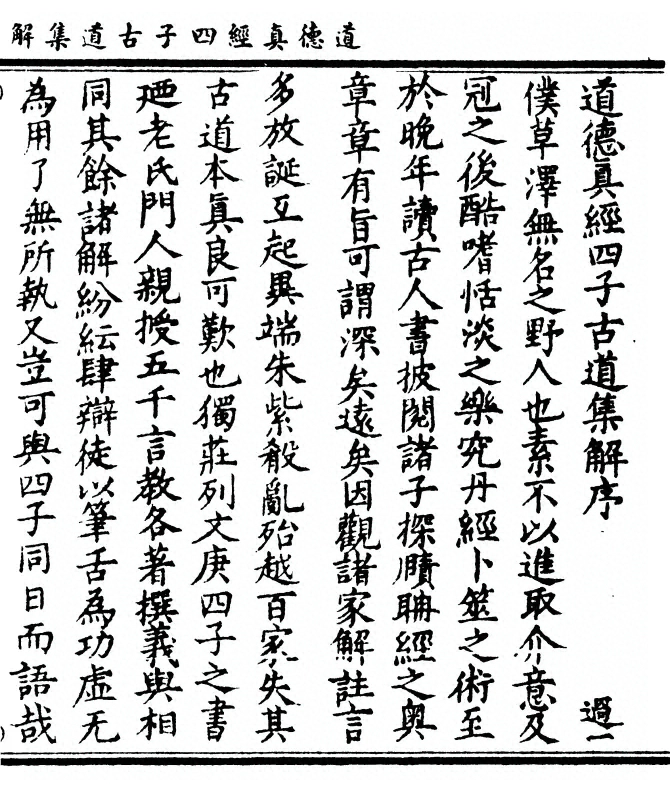 道德真經四子古道集解
道德眞經四子古道集解序 過一
僕草澤無名之野人也素不以進取介意及
冠之後酷嗜恬淡之樂究丹經卜筮之術至
於晚年讀古人書披閱諸子探賾聃經之奧
章章有旨可謂深矣遠矣因觀諸家解註言
多放誕互起異端朱紫殽亂殆越百家失其
古道本眞良可歎也獨莊列文庚四子之書
廼老氏門人親授五千言教各著撰義與相
同其餘諸解紛紜肆辯徒以筆舌為功虛无
為用了無所執又豈可與四子同日而語哉